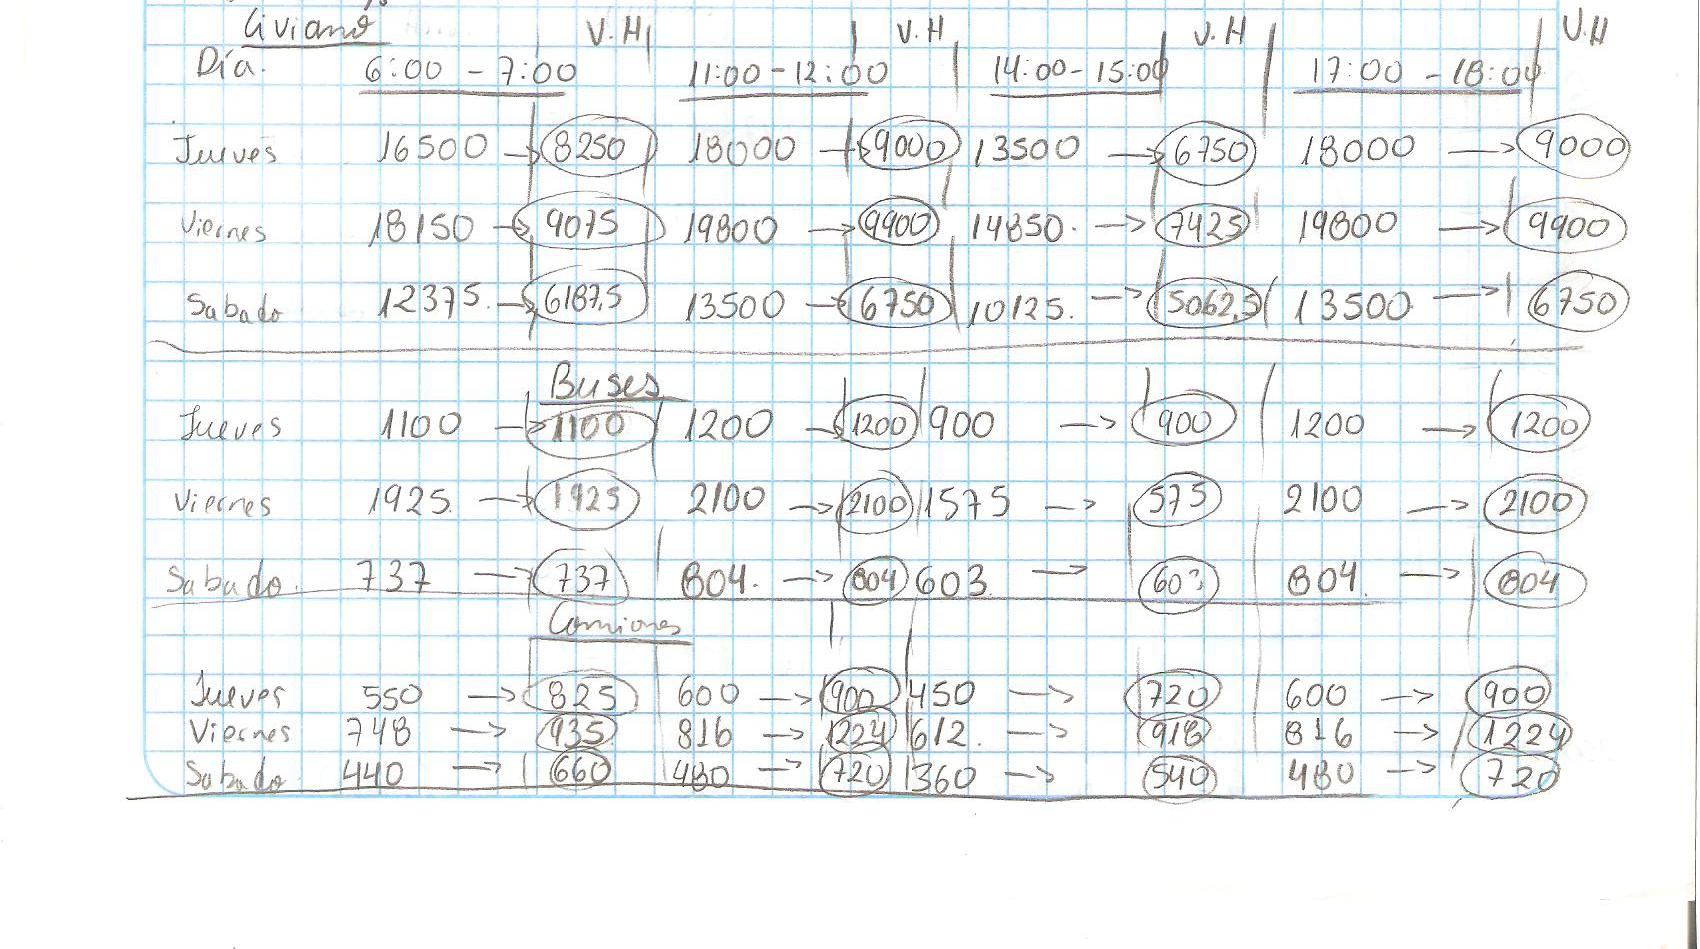 Liviano V.H V.H V.H V.H
Día. 6:00 - 7:00 11:00 - 12:00 14:00 - 15:00 17:00 - 18:00
Jueves 16500 → 8250 18000 → 9000 13500 → 6750 18000 → 9000
Viernes 18150 → 9075 19800 → 9900 14850. → 7425 19800 → 9900
Sabado 12375. → 6187,5 13500 → 6750 10125. → 5062,5 13500 → 6750
Buses
Jueves 1100 → 1100 1200 → 1200 900 → 900 1200 → 1200
Viernes 1925. → 1925 2100 → 2100 1575 → 575 2100 → 2100
Sabado. 737 → 737 804. → 804 603. → 603 804. → 804
Camiones
Jueves 550 → 825 600 → 900 450 → 720 600 → 900
Viernes 748 → 935 816 → 1224 612. → 918 816 → 1224
Sabado 440 → 660 480 → 720 360 → 540 480 → 720